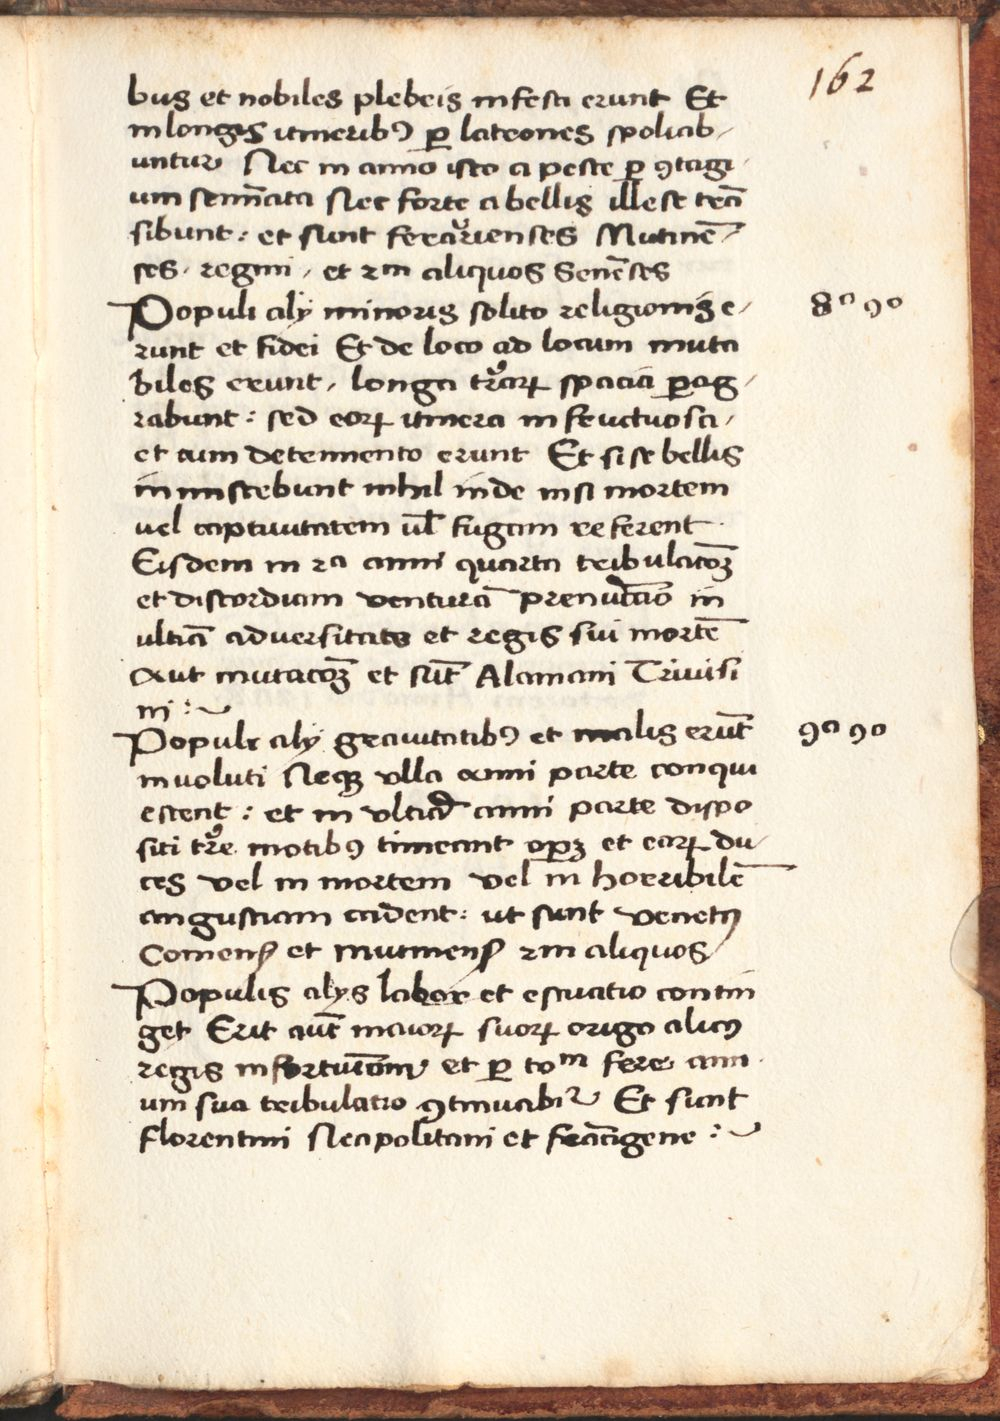 162
bus et nobiles plebeis infesti erunt Et
in longis itineribꝰ ꝑ latrones spoliab-
untur Nec in anno isto a peste ꝑ ꝯtagi-
um semīata Nec forte a bellis illese trā
sibunt : et sunt ferarienses Mutinē-
ses . regini , et rm aliquos Senēses
Populi alij minoris solito religionis e-
8ª 9º
runt et fidei Et de loco ad locum muta
biles erunt , longa trarꝝ spacia ꝑag-
rabunt : sed eorꝝ itinera infructuosa ,
et cum detrimento erunt Et si se bellis
inmiscebunt nihil inde nisi mortem
vel captivitatem vl̄ fugam referent .
Eisdem in ra anni quarta tribulacōꝫ
et discordiam venturā prenūcio in
ultīā adversitate et regis sui mortē
aut mutacōꝫ et sūt Alamani Trivisi
ni :~
Populi alij gravitatibꝰ et malis erūt
9ª 9º
involuti Neqꝫ ulla anni parte conqui
escent : et in ultīa anni parte dispo
siti tr̄e motibꝰ timeant oꝑꝫ et earꝝ du-
ces vel in mortem vel in horribilē
angustiam cadent : ut sunt venetꝰ
Comens et mutinens rm aliquos
Populis alijs labor et estuatio contin
get Erit aūt maiorꝝ suorꝝ origo alicꝰ
regis infortunium et ꝑ tom fere ann-
um sua tribulatio ꝯtinuabir Et sunt
florentini Neapolitani et francigene :~